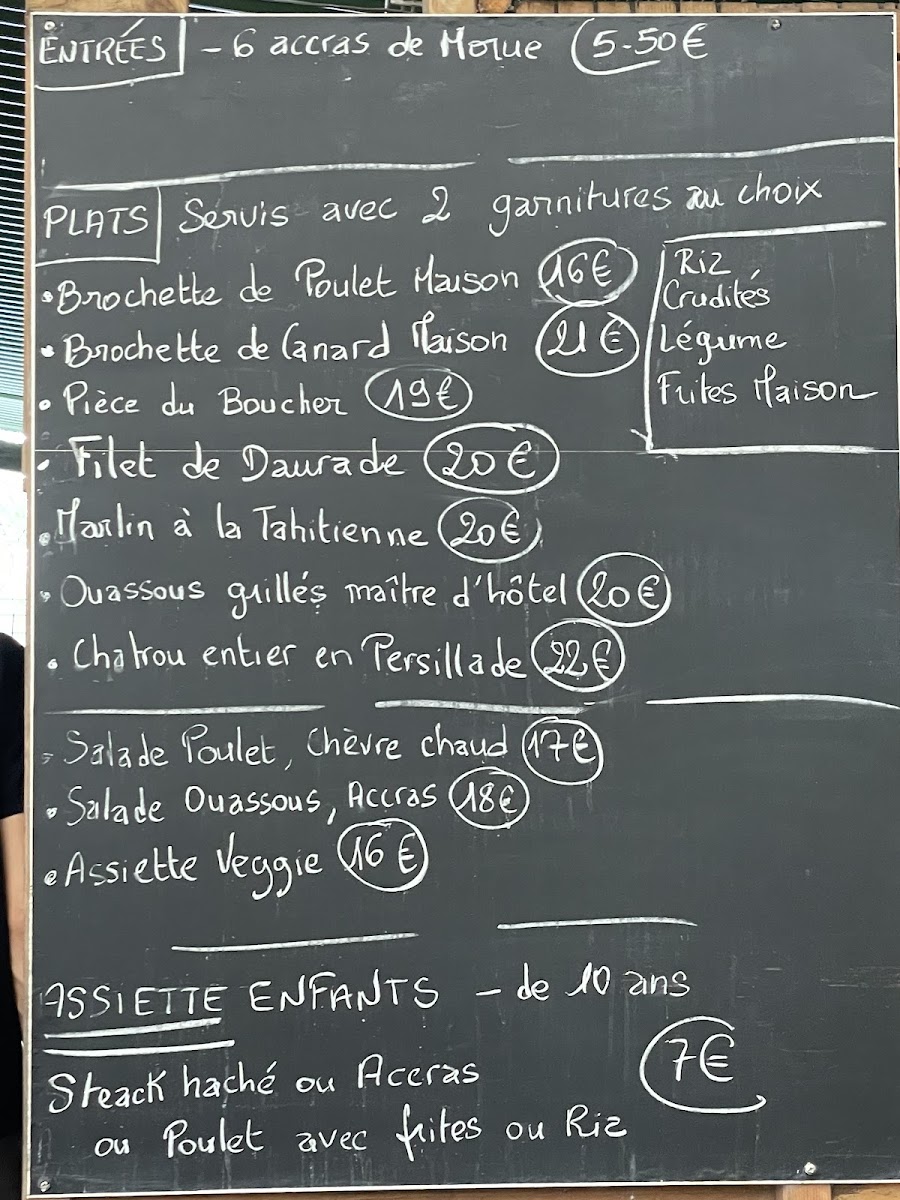 ENTRÉES - 6 accras de Morue 5.50€
PLATS Servis avec 2 garnitures au choix
• Brochette de Poulet Maison 16€
• Brochette de Canard Maison 21€
• Pièce du Boucher 19€
• Filet de Daurade 20€
• Marlin à la Tahitienne 20€
• Ouassous grillés maître d'hôtel 20€
• Chatrou entier en Persillade 22€
Riz
Crudités
Légume
Frites Maison
- Salade Poulet, Chèvre chaud 17€
• Salade Ouassous, Accras 18€
• Assiette Veggie 16€
ASSIETTE ENFANTS - de 10 ans
7€
Steack haché ou Accras
ou Poulet avec frites ou Riz